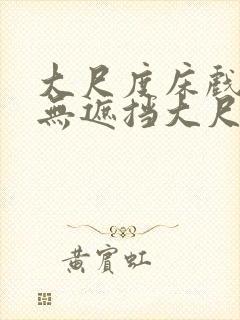 大尺度床戲
無遮挡大尺
黄賓虹